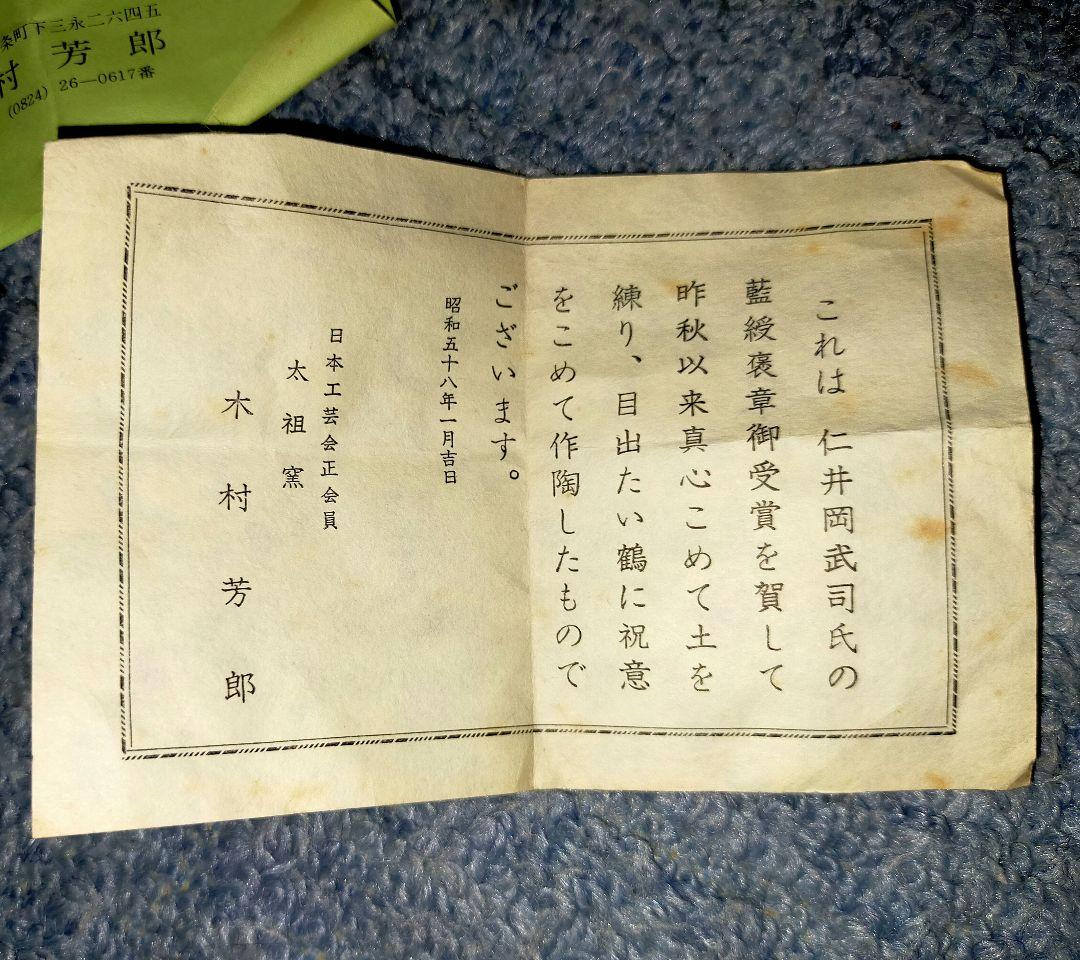 これは 仁井岡武司氏の
藍綬褒章御受賞を賀して
昨秋以来真心こめて土を
練り、目出たい鶴に祝意
をこめて作陶したもので
ございます。
昭和五十八年一月吉日
日本工芸会正会員
太祖窯
木村芳郎
条町下三永二六四五
村 芳郎
(0824) 26―0617番